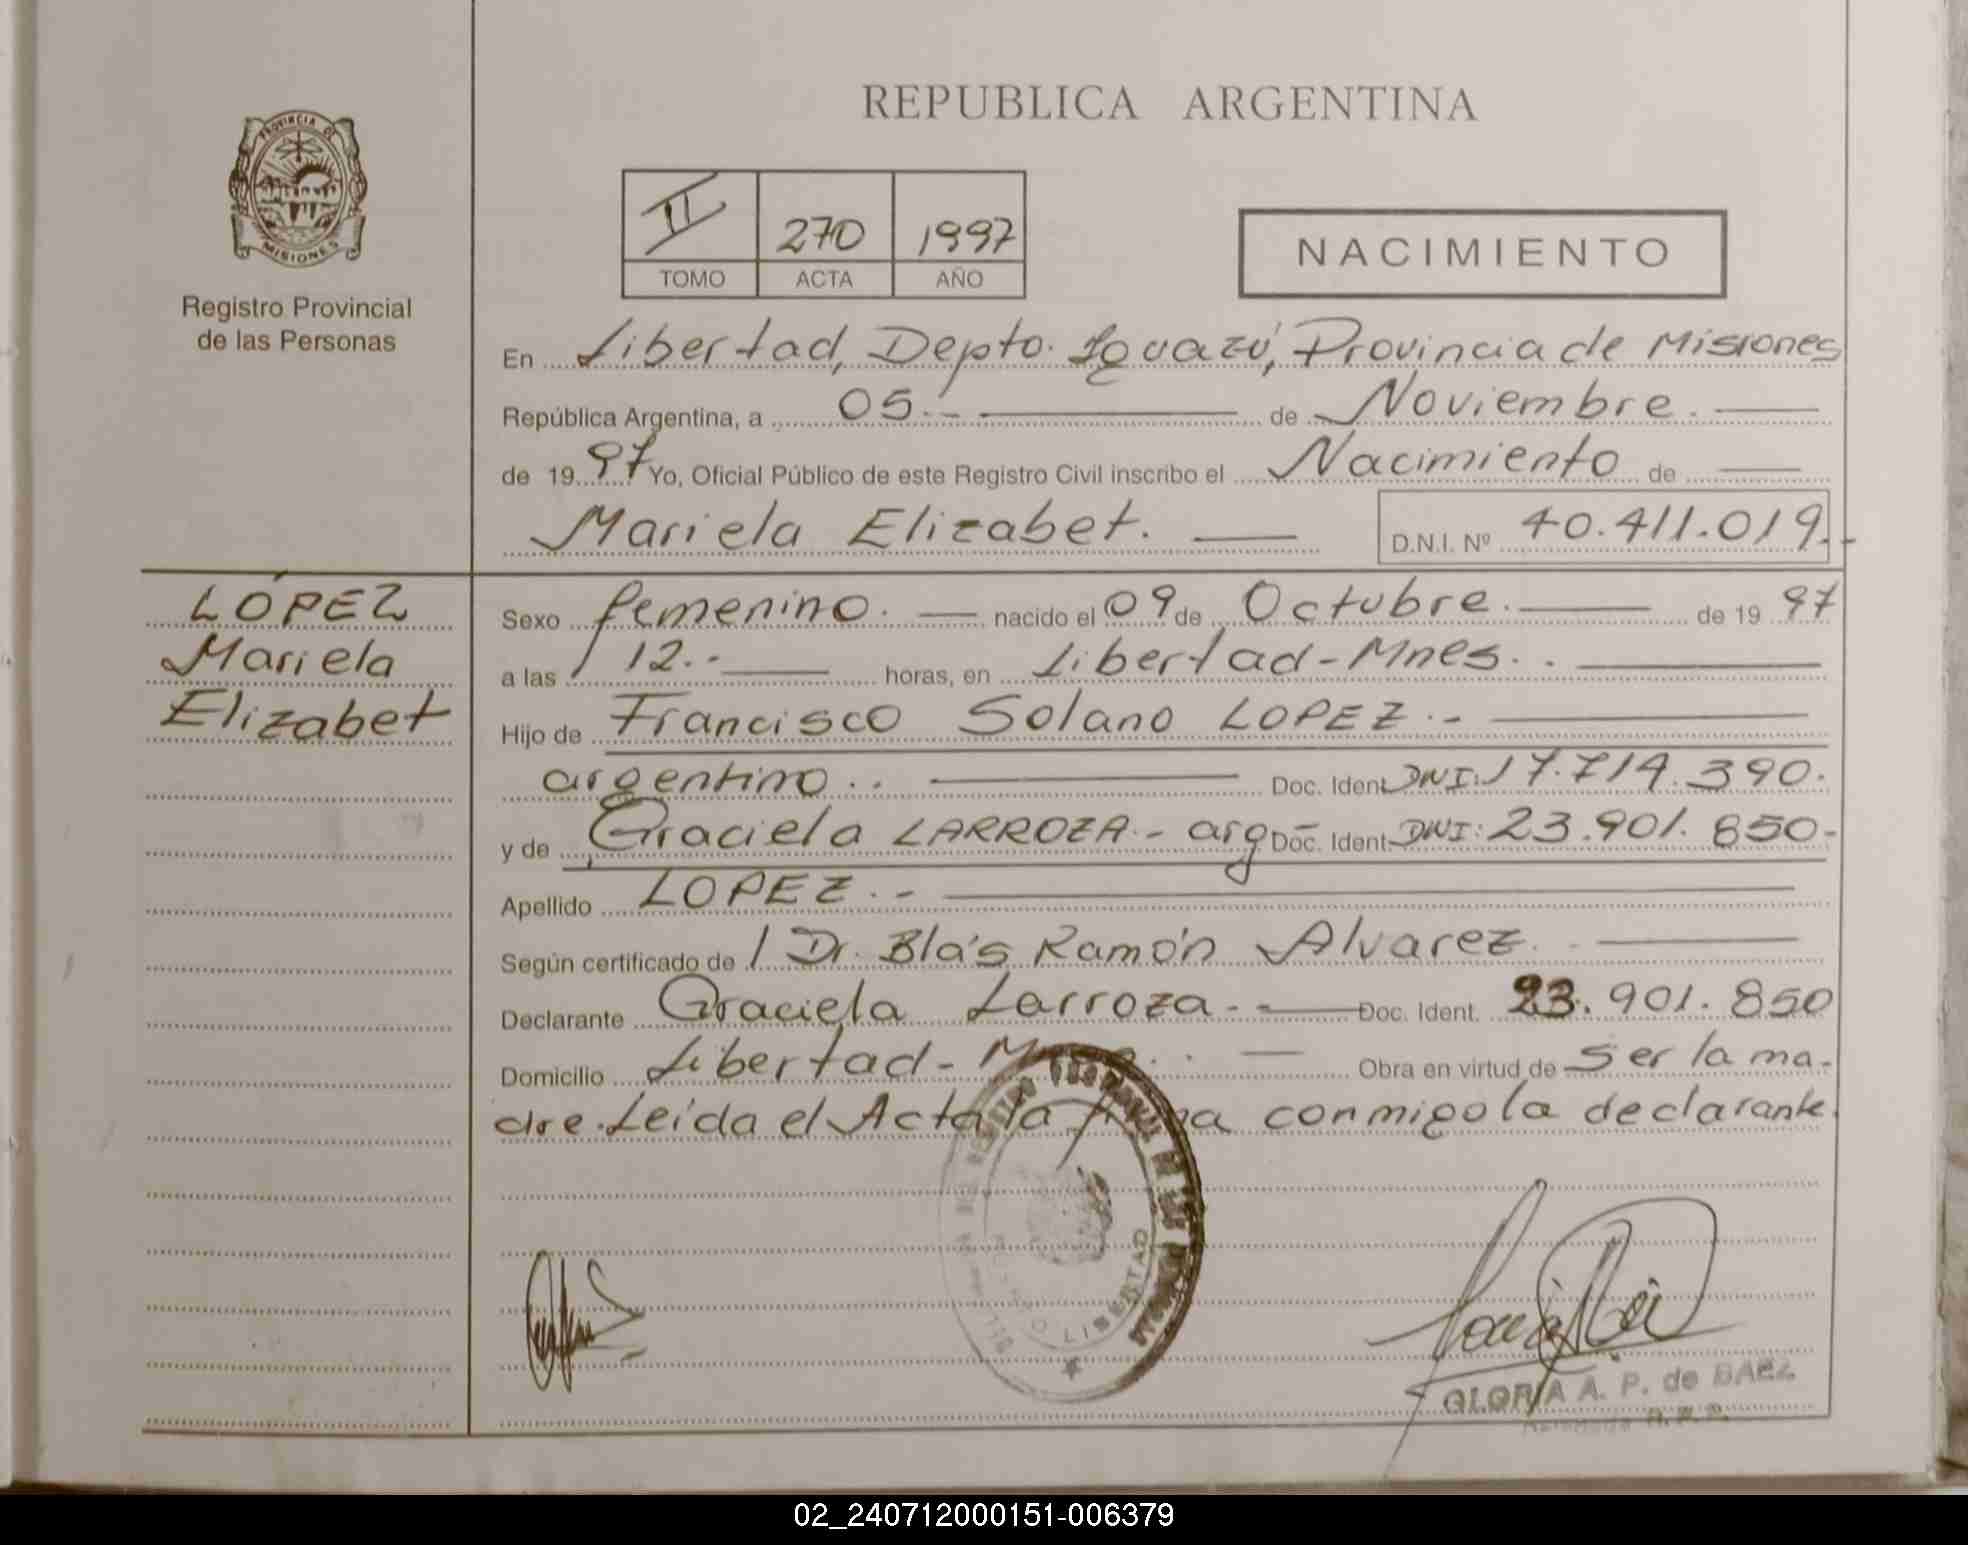 REPUBLICA ARGENTINA
PROVINCIA DE
MISIONES
Registro Provincial
de las Personas
II 270 1997
TOMO ACTA AÑO
NACIMIENTO
En Libertad, Depto. Iguazú, Provincia de Misiones
República Argentina, a 05.- de Noviembre.
de 1997 Yo, Oficial Público de este Registro Civil inscribo el Nacimiento de
Mariela Elizabet. D.N.I. Nº 40.411.019.-
LÓPEZ
Mariela
Elizabet
Sexo femenino. nacido el 09 de Octubre. de 1997
a las 12.- horas, en Libertad-Mnes..
Hijo de Francisco Solano LOPEZ.-
argentino.. Doc. Ident DNI: 17.714.390.
y de Graciela LARROZA.- arg.- Doc. Ident DNI: 23.901.850-
Apellido LOPEZ.-
Según certificado de Dr. Blás Ramón Alvarez.
Declarante Graciela Larroza.- Doc. Ident. 23.901.850
Domicilio Libertad- Obra en virtud de Ser la ma-
dre. Leída el Acta la conmigo la declarante.
LIBERTAD
GLORIA A. P. de BAEZ
02_240712000151-006379